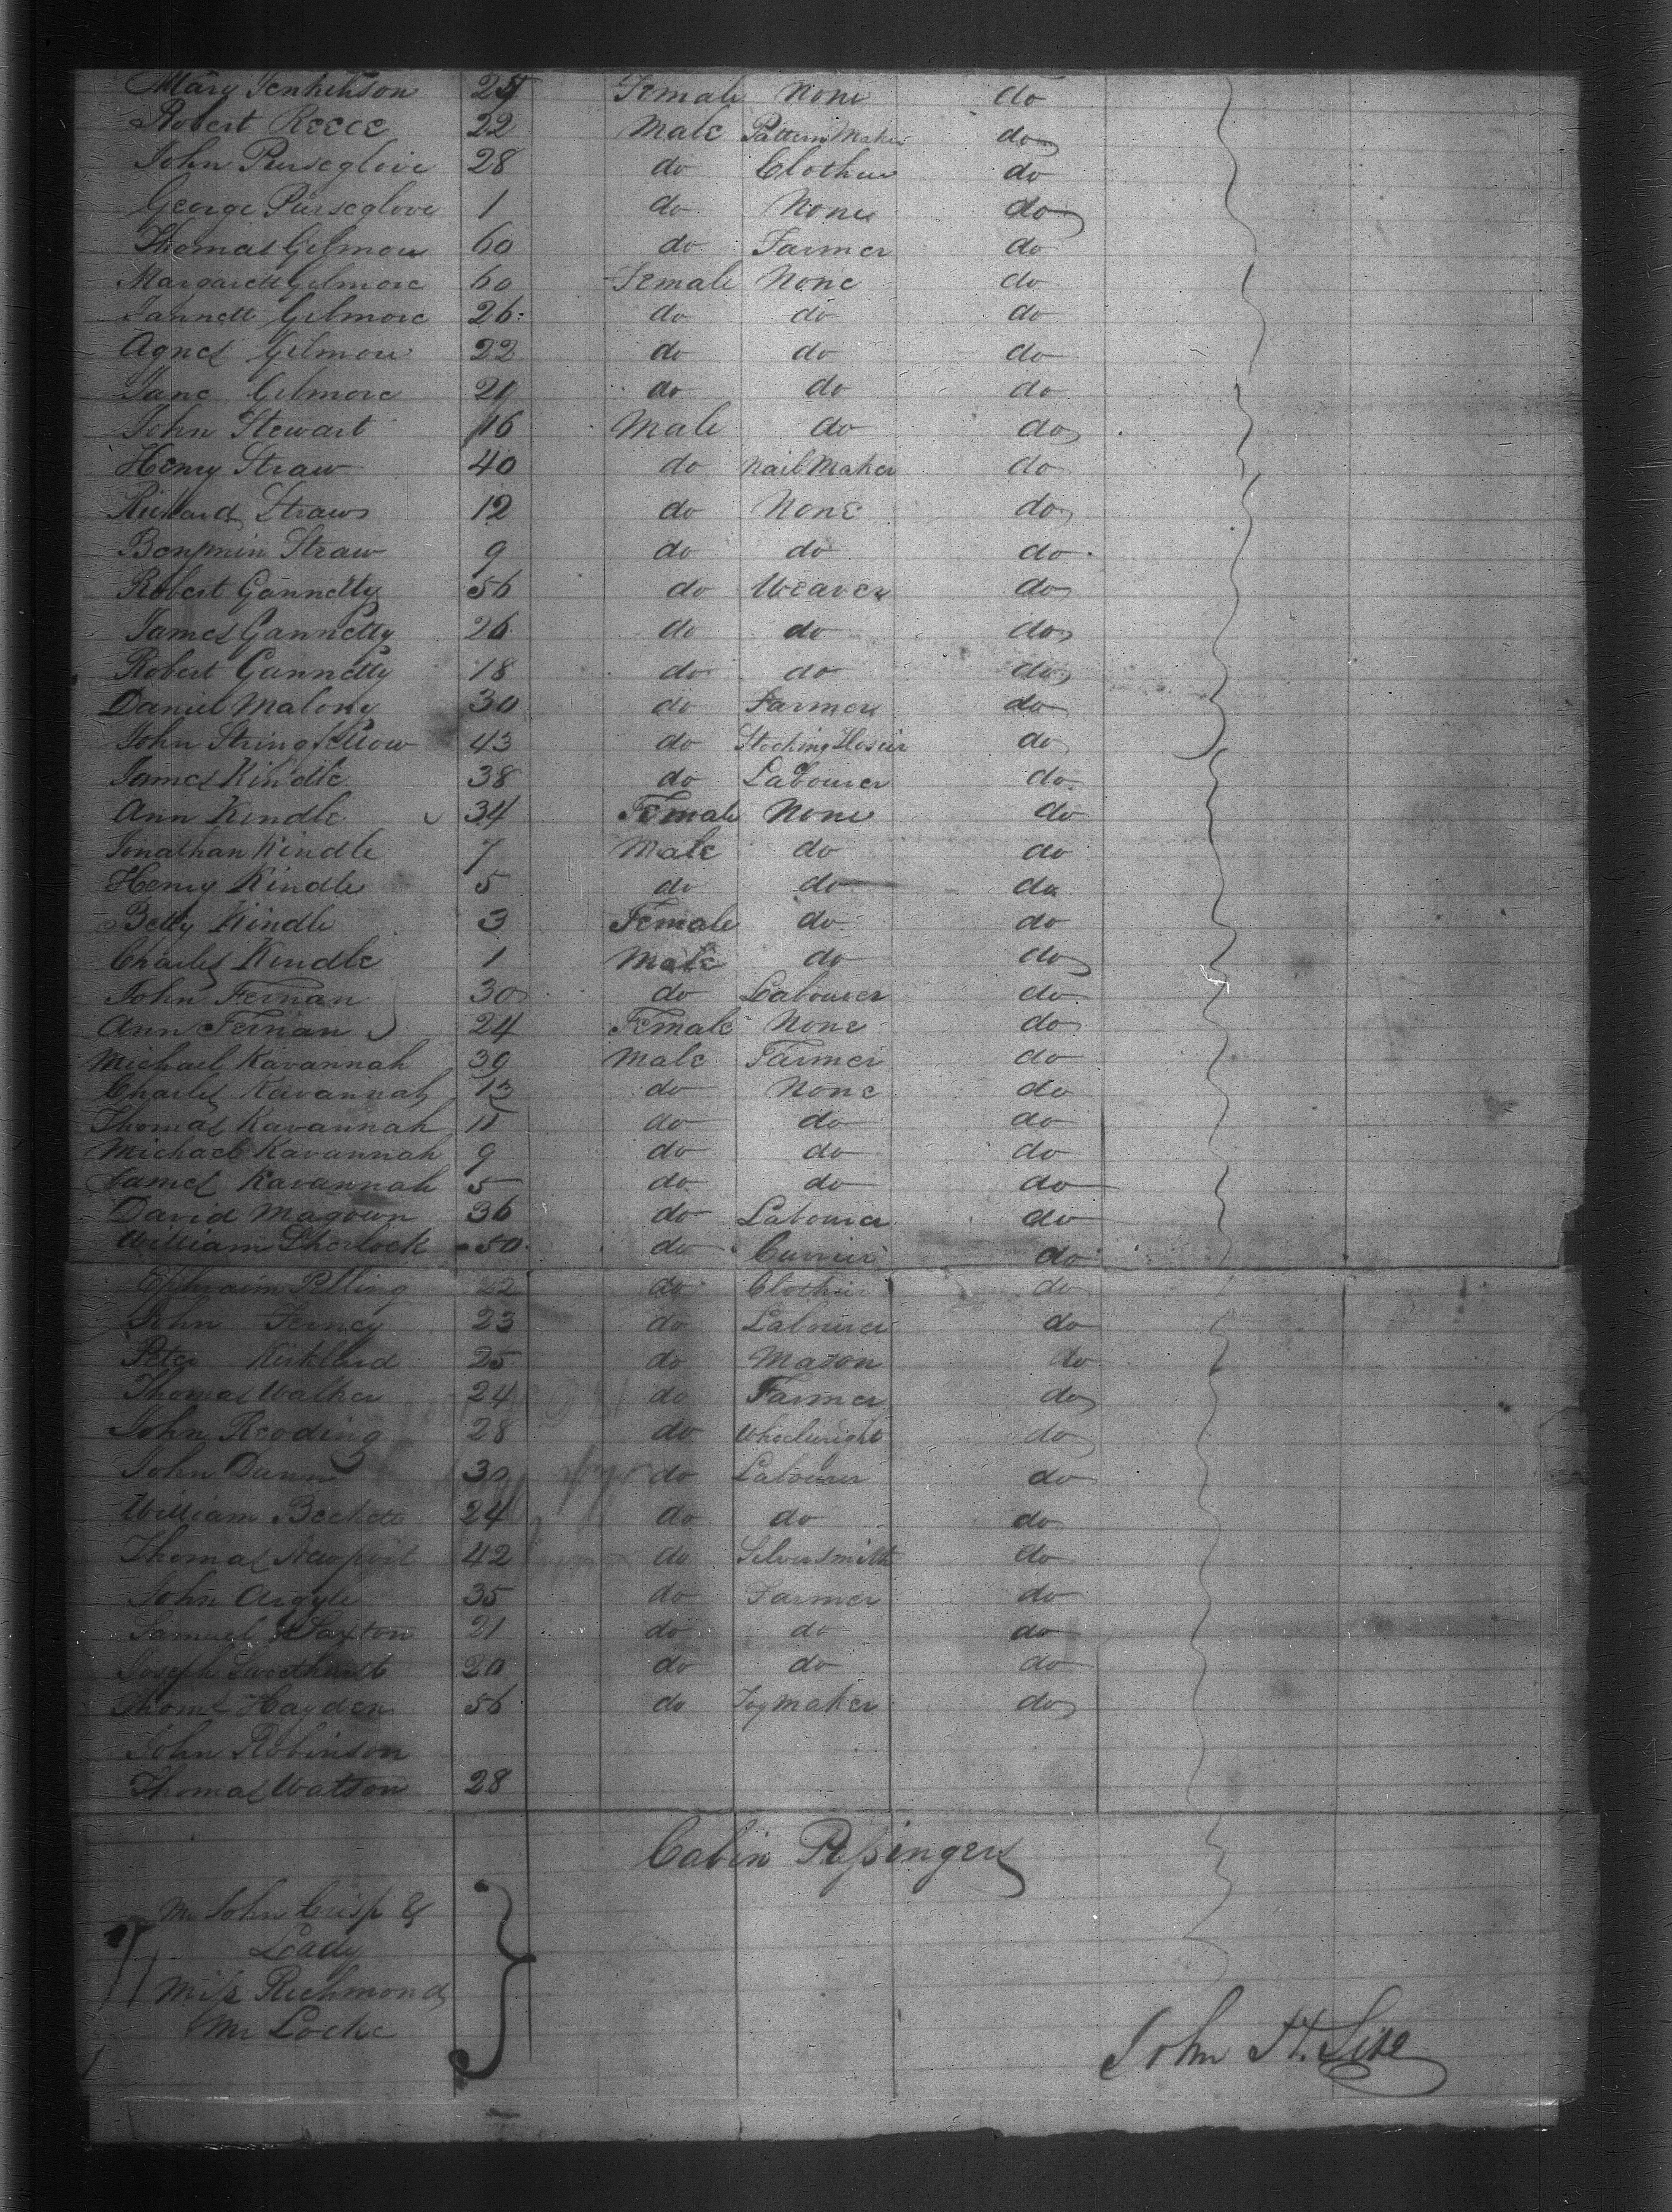 Mary Jenkinson 24 Female None do
Robert Reece 22 Male Pattern Maker do
John Purseglove 28 do Clothier do
George Purseglove 1 do None do
Thomas Gilmore 60 do Farmer do
Margarett Gilmore 60 Female None do
Jannett Gilmore 26 do do do
Agnes Gilmore 22 do do do
Jane Gilmore 20 do do do
John Stewart 16 Male do do
Henry Straw 40 do Nail Maker do
Richard Straw 12 do None do
Benjmin Straw 9 do do do
Robert Gannetty 56 do Weaver do
James Gannetty 26 do do do
Robert Gannetty 18 do do do
Daniel Malony 30 do Farmer do
John Stringfellow 43 do Stocking Hosier do
James Kindle 38 do Labourer do
Ann Kindle 34 Female None do
Jonathan Kindle 7 Male do do
Henry Kindle 5 do do do
Betty Kindle 3 Female do do
Charles Kindle 1 Male do do
John Fernan 30 do Labourer do
Ann Fernan 24 Female None do
Michael Kavannah 39 Male Farmer do
Charles Kavannah 13 do None do
Thomas Kavannah 11 do do do
Michael Kavannah 9 do do do
James Kavannah 5 do do do
David Magown 36 do Labourer do
William Sherlock 50 do Currier do
Ephraim Pelling 22 do Clothier do
John Ferney 23 do Labourer do
Peter 25 do Mason do
Thomas Walker 24 do Farmer do
John Reoding 28 do Wheelwright do
John Dunn 30 do Labourer do
William Beckett 24 do do do
Thomas Newport 42 do Silversmith do
John Argyle 35 do Farmer do
Samuel Saxton 21 do do do
Joseph 20 do do do
Thoms Hayden 56 do Toymaker do
John Robinson
Thomas Watson 28
Cabin Passingers
Mr John Crisp &
Lady
Miss Richmond
Mr Locke
John